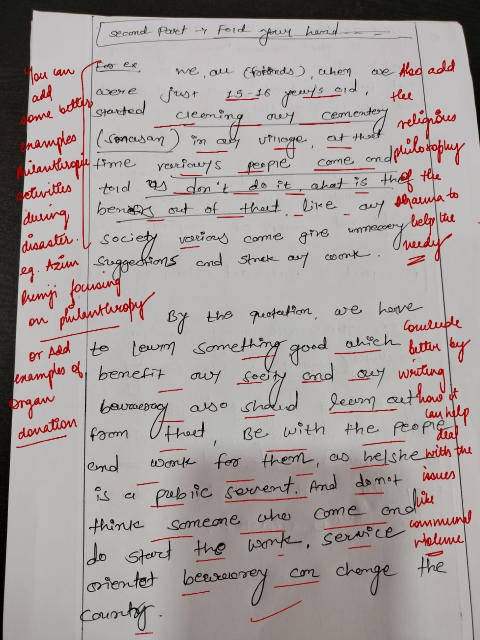 second Part → Fold your hand
For ex
We, all (friends), when we
were just 15-16 years old,
started cleening our cementery
(Smasan) in our village, at that
time various people come and
told us don't do it, what is the
benefits out of that, like our
society various come give unnecessary
suggestions and stuck our work.
By the quotation, we have
to learn something good which
benefit our socity and our
also should learn out
from that, Be with the people
and work for them, as he/she
is a public servent. And donot
think someone who come and
do start the work, service
oriented can change the
country.
You can
add
some better
examples
Philanthropic
activities
during
disaster.
eg. Azim
Premji focusing
on philanthropy
or Add
examples of
organ
donation
Also add
the
religious
philosophy
of the
dharma to
help the
needy
Conclude
better by
writing
how it
can help
deal
with the
issues
like
communal
violence